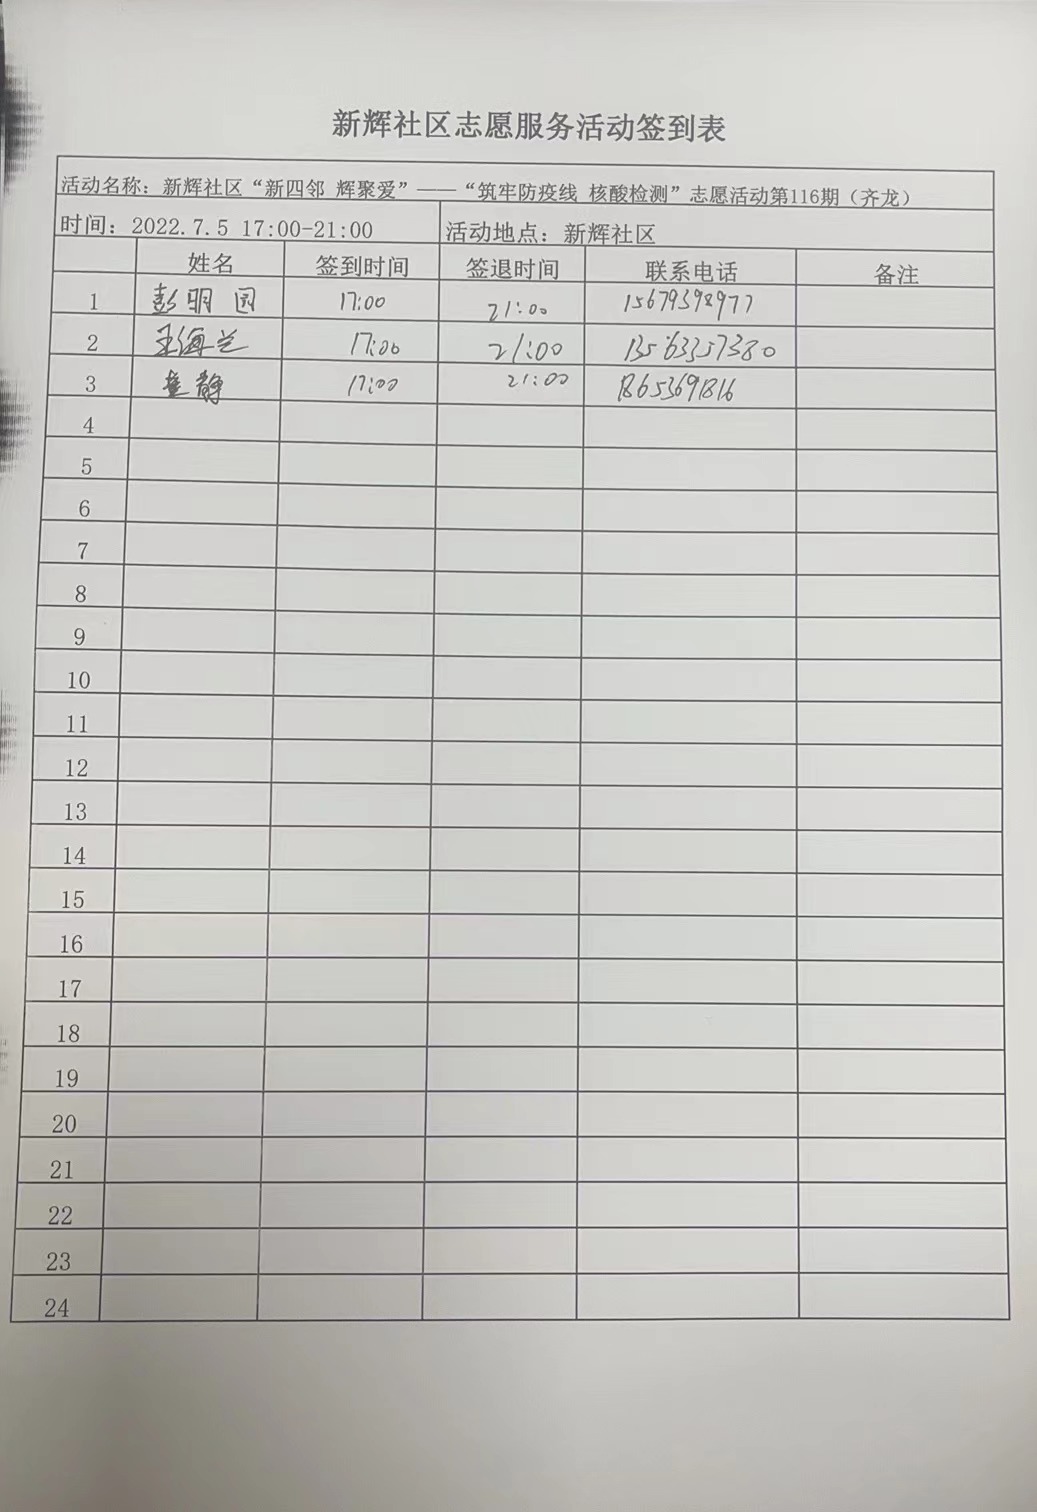 新辉社区志愿服务活动签到表
活动名称：新辉社区“新四邻 辉聚爱”——“筑牢防疫线 核酸检测”志愿活动第116期（齐龙）
时间：2022.7.5 17:00-21:00 活动地点：新辉社区
姓名 签到时间 签退时间 联系电话 备注
1 彭明园 17:00 21:00 15679398977
2 王海兰 17:00 21:00 13563357380
3 静 17:00 21:00 18653691816
4
5
6
7
8
9
10
11
12
13
14
15
16
17
18
19
20
21
22
23
24